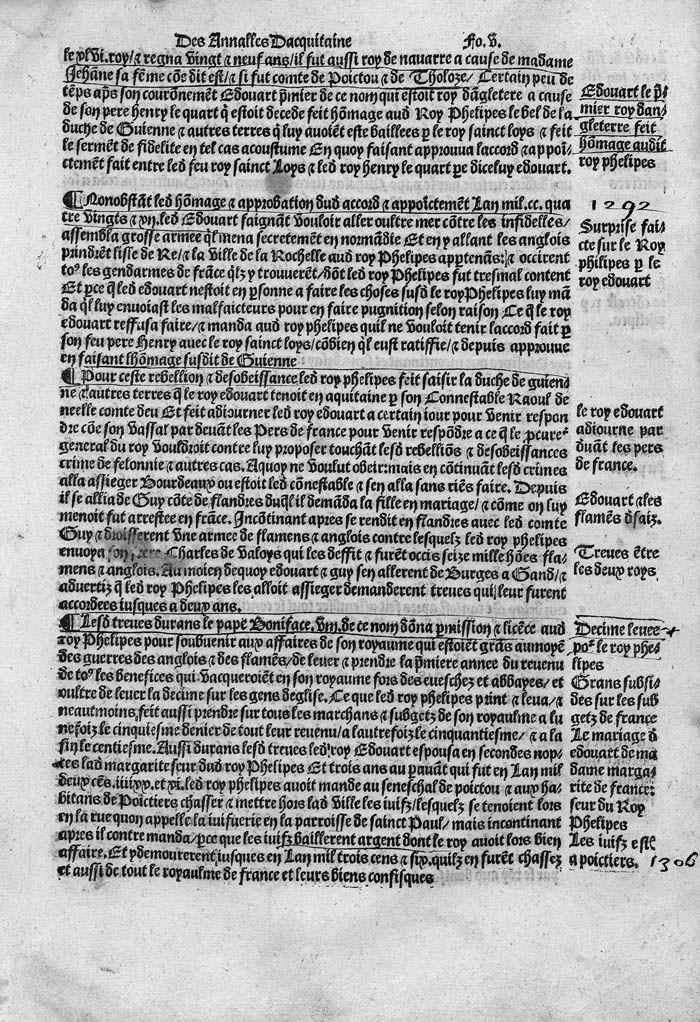 Des Annalles Dacquitaine Fo. v.
le xlvi. roy/ ⁊ regna vingt ⁊ neuf ans/ il fut aussi roy de navarre a cause de madame
Jehãne sa fẽme cõe dit est/ ⁊ si fut comte de Poictou ⁊ de Tholoze/ Certain peu de
tẽps apꝭs son courõnemẽt Edouart pʳmier de ce nom qui estoit roy dãgleterre a cause
de son pere henry le quart q̃ estoit decede feit hõmage aud Roy Phelipes le bel de la
duche de Guienne ⁊ autres terres q̃ luy avoiẽt este baillees ꝑ le roy sainct loys ⁊ feit
le sermẽt de fidelite en tel cas acoustume En quoy faisant approuva laccord ⁊ appoĩ-
ctement fait entre led feu roy sainct Loys ⁊ led roy henry le quart pe diceluy edouart.
¶ Nonobstãt led hõmage ⁊ approbation dud accord ⁊ appoictemẽt Lan mil. cc. qua
tre vingts ⁊ xii. led Edouart faignãt vouloir aller oultre mer cõtre les infidelles/
assembla grosse armee q̃l mena secretemẽt en normãdie Et en y allant les anglois
prindrẽt lisle de Re/ ⁊ la ville de la Rochelle aud roy Phelipes appertenãs: ⁊ occirent
toꝰ les gendarmes de frãce q̃lz y trouverẽt/ dõt led roy Phelipes fut tresmal content
Et ꝑce q̃ led edouart nestoit en ꝑsonne a faire les choses susd le roy Phelipes luy mã
da q̃l luy envoiast les malfaicteurs pour en faire pugnition selon raison Ce q̃ le roy
edouart reffusa faire/ ⁊ manda aud roy phelipes quil ne vouloit tenir laccord fait ꝑ
son feu pere Henry avec le roy sainct loys/ cõbien q̃l eust ratiffie/ ⁊ depuis approuve
en faisant lhõmage susdit de Guienne
¶ Pour ceste rebellion ⁊ desobeissance led roy phelipes feit saisir la duche de guien-
ne ⁊ autres terres q̃ le roy edouart tenoit en aquitaine ꝑ son Connestable Raoul de
neelle comte deu Et feit adiourner led roy edouart a certain iour pour venir respon
dre cõe son vassal par devãt les Pers de france pour venir respõdre a ce q̃ le ꝓcure-
general du roy vouldroit contre luy proposer touchãt lesd rebelliõs ⁊ desobeissances
crime de felonnie ⁊ autres cas. Aquoy ne voulut obeir: mais en cõtinuãt lesd crimes
alla assieger Bourdeaux ou estoit led cõnestable ⁊ sen alla sans riẽs faire. Depuis
il se allia de Guy cõte de flandres duq̃l il demãda la fille en mariage/ ⁊ cõme on luy
menoit fut arrestee en frãce. Incõtinant apres se rendit en flandres avec led comte
Guy ⁊ droisserent une armee de flamens ⁊ anglois contre lesquelz led roy phelipes
envoya son frere Charles de Valoys qui les deffit ⁊ furẽt occis seize mille hões fla-
mens ⁊ anglois. Au moien dequoy edouart ⁊ guy sen allerent de Burges a Gand/ ⁊
advertiz q̃ led roy Phelipes les alloit assieger demanderent treves qui leur furent
accordees iusques a deux ans.
¶ Lesd treves durans le pape Boniface. viii. de ce nom dõna ꝑmission ⁊ licẽce aud
roy Phelipes pour soubvenir aux affaires de son royaume qui estoiẽt grãs au moyẽ
des guerres des anglois ⁊ des flamẽs/ de lever ⁊ prendre la pʳmiere annee du revenu
de toꝰ les benefices qui vacqueroiẽt en son royaume fors des eveschez et abbayes/ et
oultre de lever la decime sur les gens deglise. Ce que led roy phelipes print ⁊ leva/ ⁊
neautmoins, feit aussi prendre sur tous les marchans ⁊ subgetz de son royaulme a lu
ne foiz le cinquiesme denier de tout leur revenu/ a lautrefoiz le cinquantiesme/ ⁊ a la
fin le centiesme. Aussi durans lesd treves led roy Edouart espousa en secondes nop-
ces lad margarite seur dud roy Phelipes Et trois ans au ꝑavãt qui fut en Lan mil
deux cẽs. iiiixx. et xi. led roy phelipes avoit mande au seneschal de poictou ⁊ aux ha-
bitans de Poictiers chasser ⁊ mettre hors lad ville les iuifz/ lesquelz se tenoient lors
en la rue quon appelle la iuifuerie en la parroisse de sainct Paul/ mais incontinant
apres il contre manda/ ꝑce que les iuifz baillerent argent dont le roy avoit lors bien
affaire. Et ydemourerent iusques en Lan mil trois cens ⁊ six. quilz en furẽt chassez
et aussi de tout le royaulme de france et leurs biens confisques
Edouart le pʳ-
mier roy dan-
gleterre feit
hõmage audit
roy phelipes
1292
Surprise fai-
cte sur le Roy
philipes ꝑ le
roy edouart
le roy edouart
adiourne par
duãt les pers
de france.
Edouart ⁊ les
flamẽs dsaiz.
Treves ẽtre
les deux roys
Decime levee
poꝰ le roy phe-
lipes
Grans subsi-
des sur les sub
getz de france
Le mariage d
edouart de ma
dame marga-
rite de france:
seur du Roy
Phelipes
Les iuifz est
a poictiers. 1306